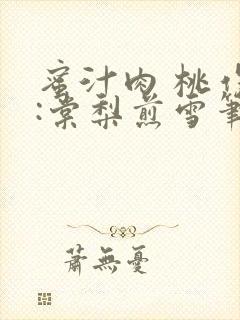 蜜汁肉桃作
:棠梨煎雪筆
蕭無憂